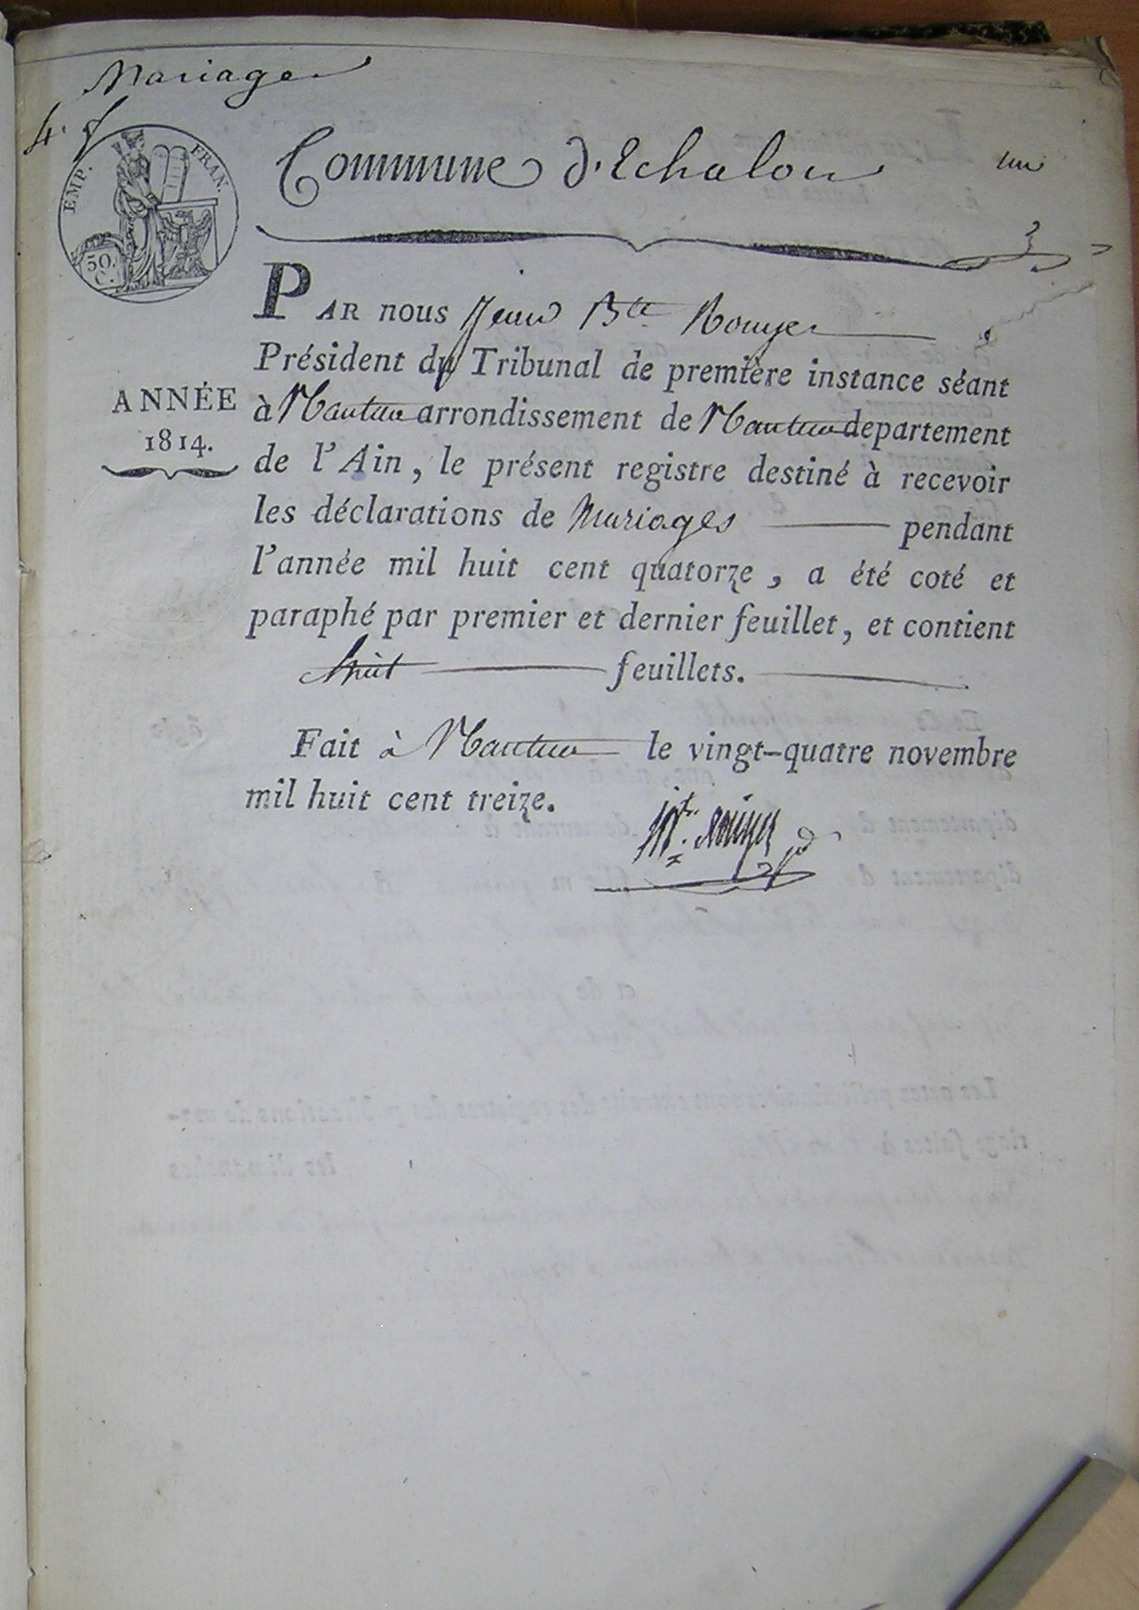 Mariages
4. f
EMP. FRAN.
50.
C.
Commune d'Echalon
un
PAR nous Jean Bte Rouyer
Président du Tribunal de première instance séant
ANNÉE
1814.
à Nantua arrondissement de Nantua département
de l'Ain, le présent registre destiné à recevoir
les déclarations de Mariages pendant
l'année mil huit cent quatorze, a été coté et
paraphé par premier et dernier feuillet, et contient
huit feuillets.
Fait à Nantua le vingt-quatre novembre
mil huit cent treize.
Rouyer